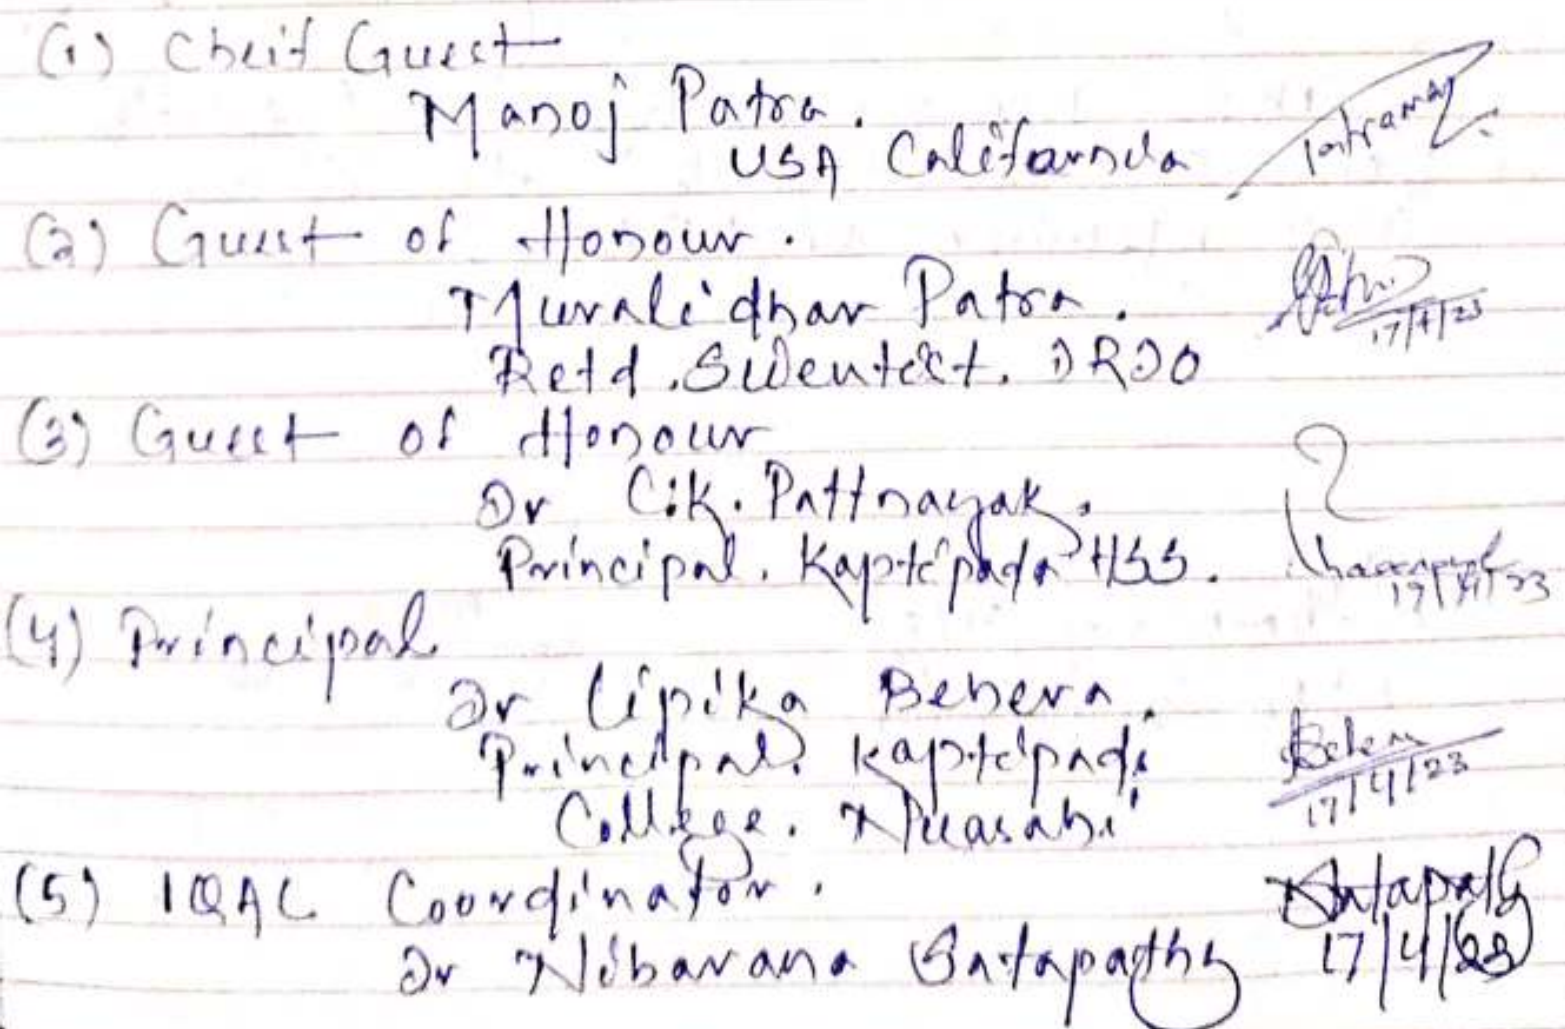 (1) Cheif Guest
Manoj Patra.
USA California
(2) Guest of Honour.
Muralidhar Patra.
17/4/23
Retd. Scientist. DRDO
(3) Guest of Honour
Dr C.K. Pattnayak.
Principal. Kaptipada HSS.
17/4/23
(4) Principal
Dr Lipika Behera.
Behera
Principal. Kaptipada
17/4/23
College. Nuasahi
(5) IQAC Coordinator.
Satapathy
Dr Nibarana Satapathy
17/4/23